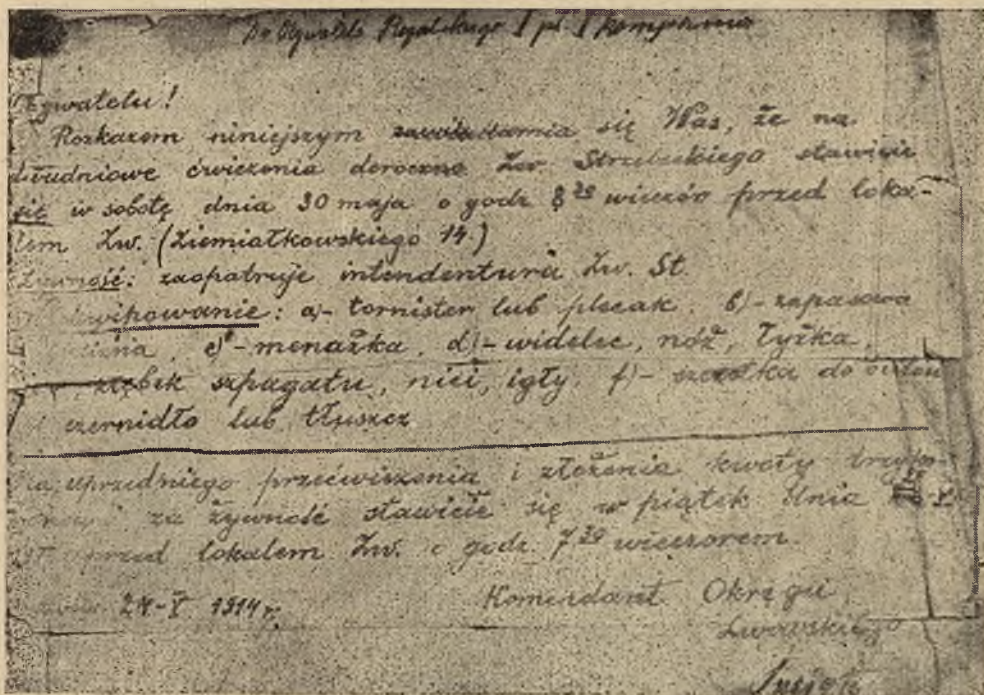 Do Obywatela Rogalskiego I pl. I kompanii
Obywatelu!
Rozkazem niniejszym zawiadamia się Was, że na
dwudniowe ćwiczenia doroczne Zw. Strzeleckiego stawicie
się w sobotę dnia 30 maja o godz 8 30 wieczór przed loka-
lem Zw. (Ziemiałkowskiego 14.)
Żywność: zaopatruje intendentura Zw. St.
a)- tornister lub plecak. b)- zapasowa
c)- menażka, d)- widelec, nóż, łyżka,
szpagatu, nici, igły. f)- szczotka do
czernidło lub tłuszcz
uprzedniego przećwiczenia i złożenia kwoty
za żywność stawicie się w piątek dnia
przed lokalem Zw. o godz. 7 30 wieczorem.
24-V 1914 r. Komendant Okręgu
Lwowskiego